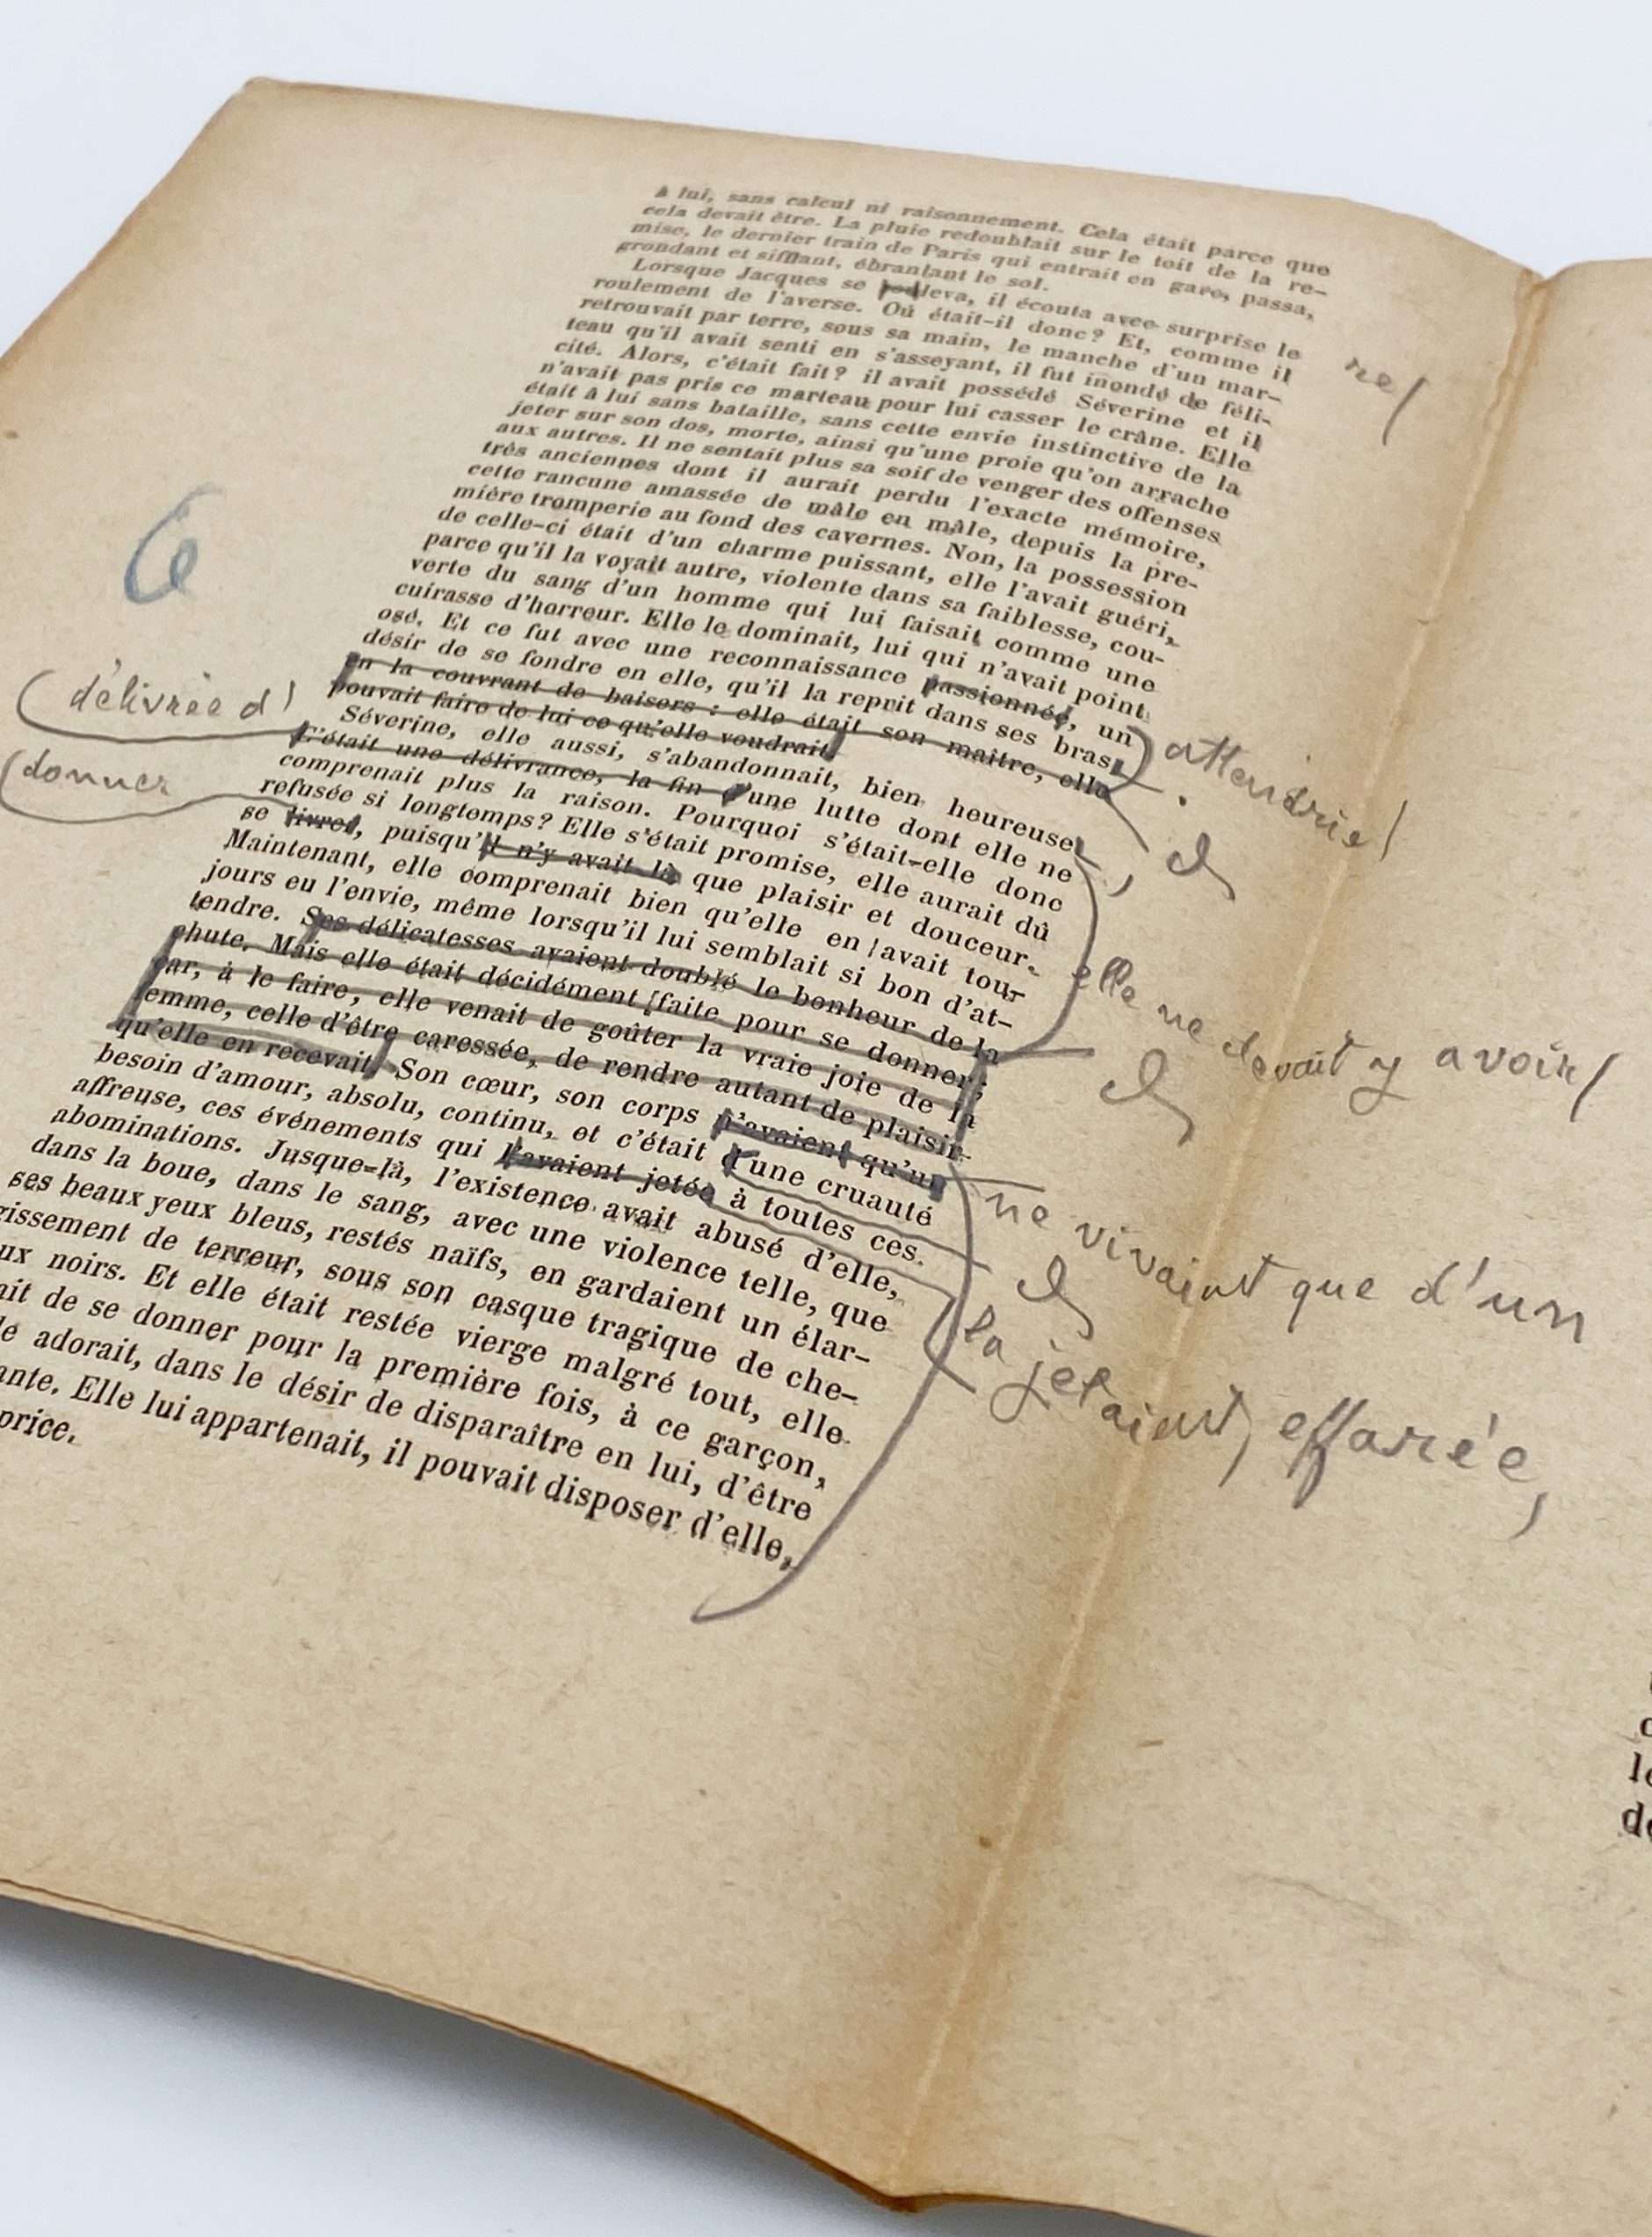 à lui, sans calcul ni raisonnement. Cela était parce que
cela devait être. La pluie redoublait sur le toit de la re-
mise, le dernier train de Paris qui entrait en gare, passa,
grondant et sifflant, ébranlant le sol.
Lorsque Jacques se leva, il écouta avec surprise le
re/
roulement de l'averse. Où était-il donc? Et, comme il
retrouvait par terre, sous sa main, le manche d'un mar-
teau qu'il avait senti en s'asseyant, il fut inondé de féli-
cité. Alors, c'était fait? il avait possédé Séverine et il
n'avait pas pris ce marteau pour lui casser le crâne. Elle
était à lui sans bataille, sans cette envie instinctive de la
jeter sur son dos, morte, ainsi qu'une proie qu'on arrache
aux autres. Il ne sentait plus sa soif de venger des offenses
très anciennes dont il aurait perdu l'exacte mémoire,
cette rancune amassée de mâle en mâle, depuis la pre-
mière tromperie au fond des cavernes. Non, la possession
de celle-ci était d'un charme puissant, elle l'avait guéri,
parce qu'il la voyait autre, violente dans sa faiblesse, cou-
verte du sang d'un homme qui lui faisait comme une
cuirasse d'horreur. Elle le dominait, lui qui n'avait point
osé. Et ce fut avec une reconnaissance passionnée, un
attendrie/
désir de se fondre en elle, qu'il la reprit dans ses bras,
en la couvrant de baisers : elle était son maître, elle
pouvait faire de lui ce qu'elle voudrait.
Séverine, elle aussi, s'abandonnait, bien heureuse,
délivrée d'
C'était une délivrance, la fin d'une lutte dont elle ne
comprenait plus la raison. Pourquoi s'était-elle donc
refusée si longtemps? Elle s'était promise, elle aurait dû
donner
se livrer, puisqu'il n'y avait là que plaisir et douceur.
elle ne devait y avoir/
Maintenant, elle comprenait bien qu'elle en avait tou-
jours eu l'envie, même lorsqu'il lui semblait si bon d'at-
tendre. Ses délicatesses avaient doublé le bonheur de la
chute. Mais elle était décidément faite pour se donner;
car, à le faire, elle venait de goûter la vraie joie de la
femme, celle d'être caressée, de rendre autant de plaisir
qu'elle en recevait. Son cœur, son corps n'avaient qu'un
ne vivaient que d'un
besoin d'amour, absolu, continu, et c'était d'une cruauté
affreuse, ces événements qui l'avaient jetée à toutes ces
la jetaient, effarée,
abominations. Jusque-là, l'existence avait abusé d'elle,
dans la boue, dans le sang, avec une violence telle, que
ses beaux yeux bleus, restés naïfs, en gardaient un élar-
gissement de terreur, sous son casque tragique de che-
ux noirs. Et elle était restée vierge malgré tout, elle
ait de se donner pour la première fois, à ce garçon,
le adorait, dans le désir de disparaître en lui, d'être
ante. Elle lui appartenait, il pouvait disposer d'elle,
price.
6